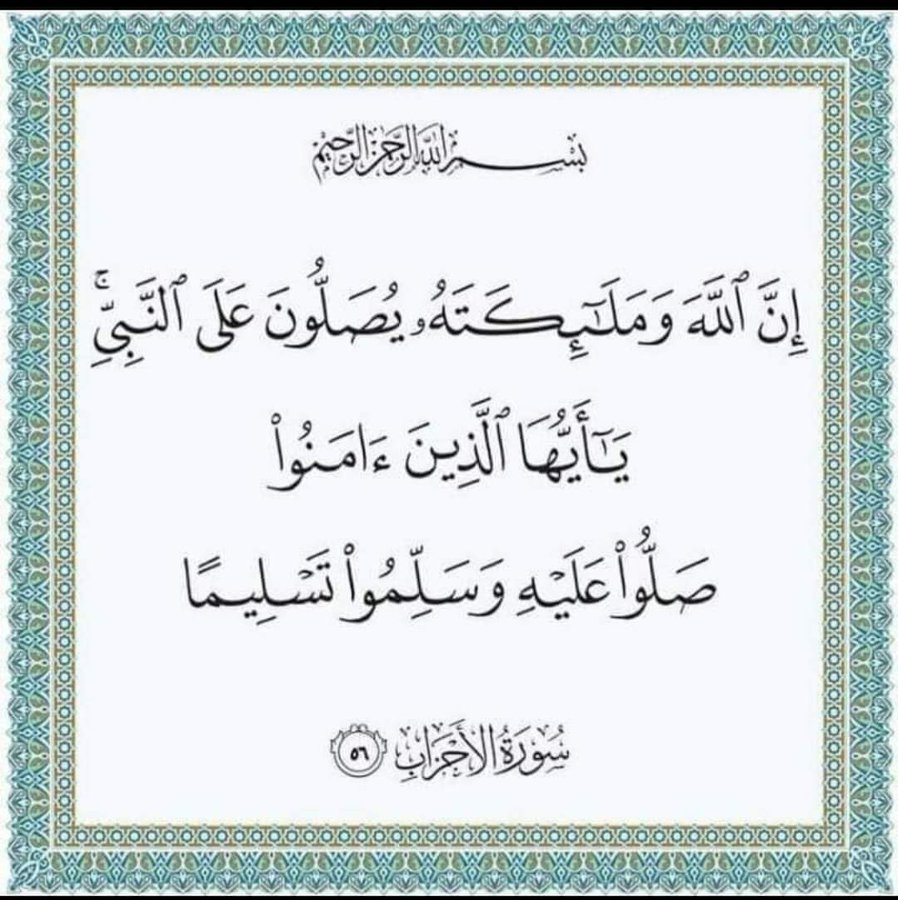 بِسْمِ اللَّهِ الرَّحْمَٰنِ الرَّحِيمِ
إِنَّ ٱللَّهَ وَمَلَـٰٓئِكَتَهُۥ يُصَلُّونَ عَلَى ٱلنَّبِىِّ ۚ
يَـٰٓأَيُّهَا ٱلَّذِينَ ءَامَنُوا۟
صَلُّوا۟ عَلَيْهِ وَسَلِّمُوا۟ تَسْلِيمًا
سُورَةُ الأَحْزَابِ ٥٦